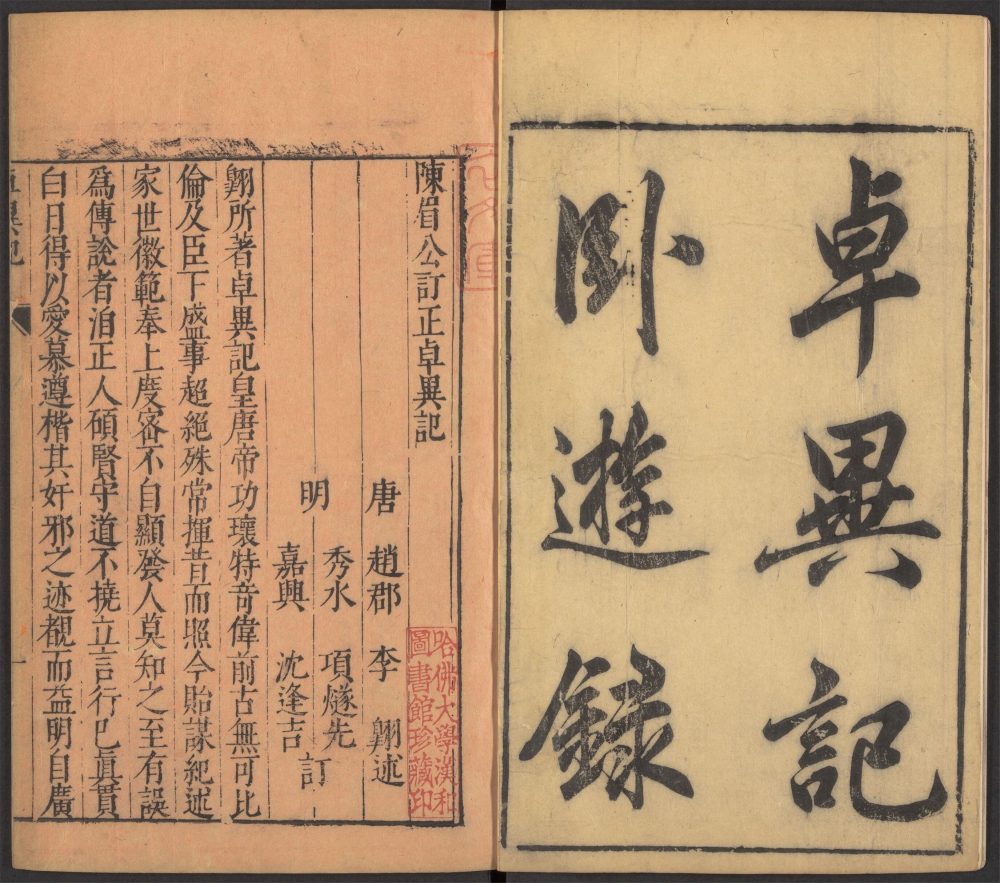 卓異記
卧遊錄
陳眉公訂正卓異記
唐　趙郡　李　翺述
秀水　項燧先
明　訂
嘉興　沈逢吉
翺所著卓異記皇唐帝功瓌特奇偉前古無可比
倫及臣下盛事超絕殊常揮昔而照今貽謀紀述
家世徽範奉上度密不自顯發人莫知之至有誤
爲傳說者洎正人碩賢守道不撓立言行已眞貫
白日得以愛慕遵楷其奸邪之迹覩而益明自廣
卓異記
一
哈佛大學漢和
圖書館珍藏印